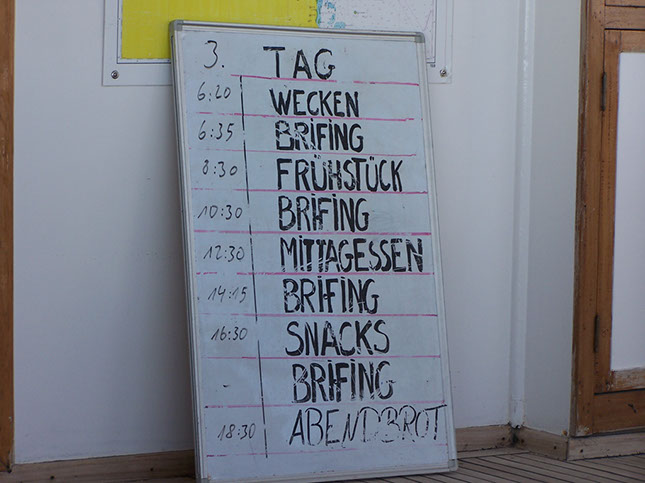 3. TAG
6:20 WECKEN
6:35 BRIFING
8:30 FRÜHSTÜCK
10:30 BRIFING
12:30 MITTAGESSEN
14:15 BRIFING
16:30 SNACKS
BRIFING
18:30 ABENDBROT